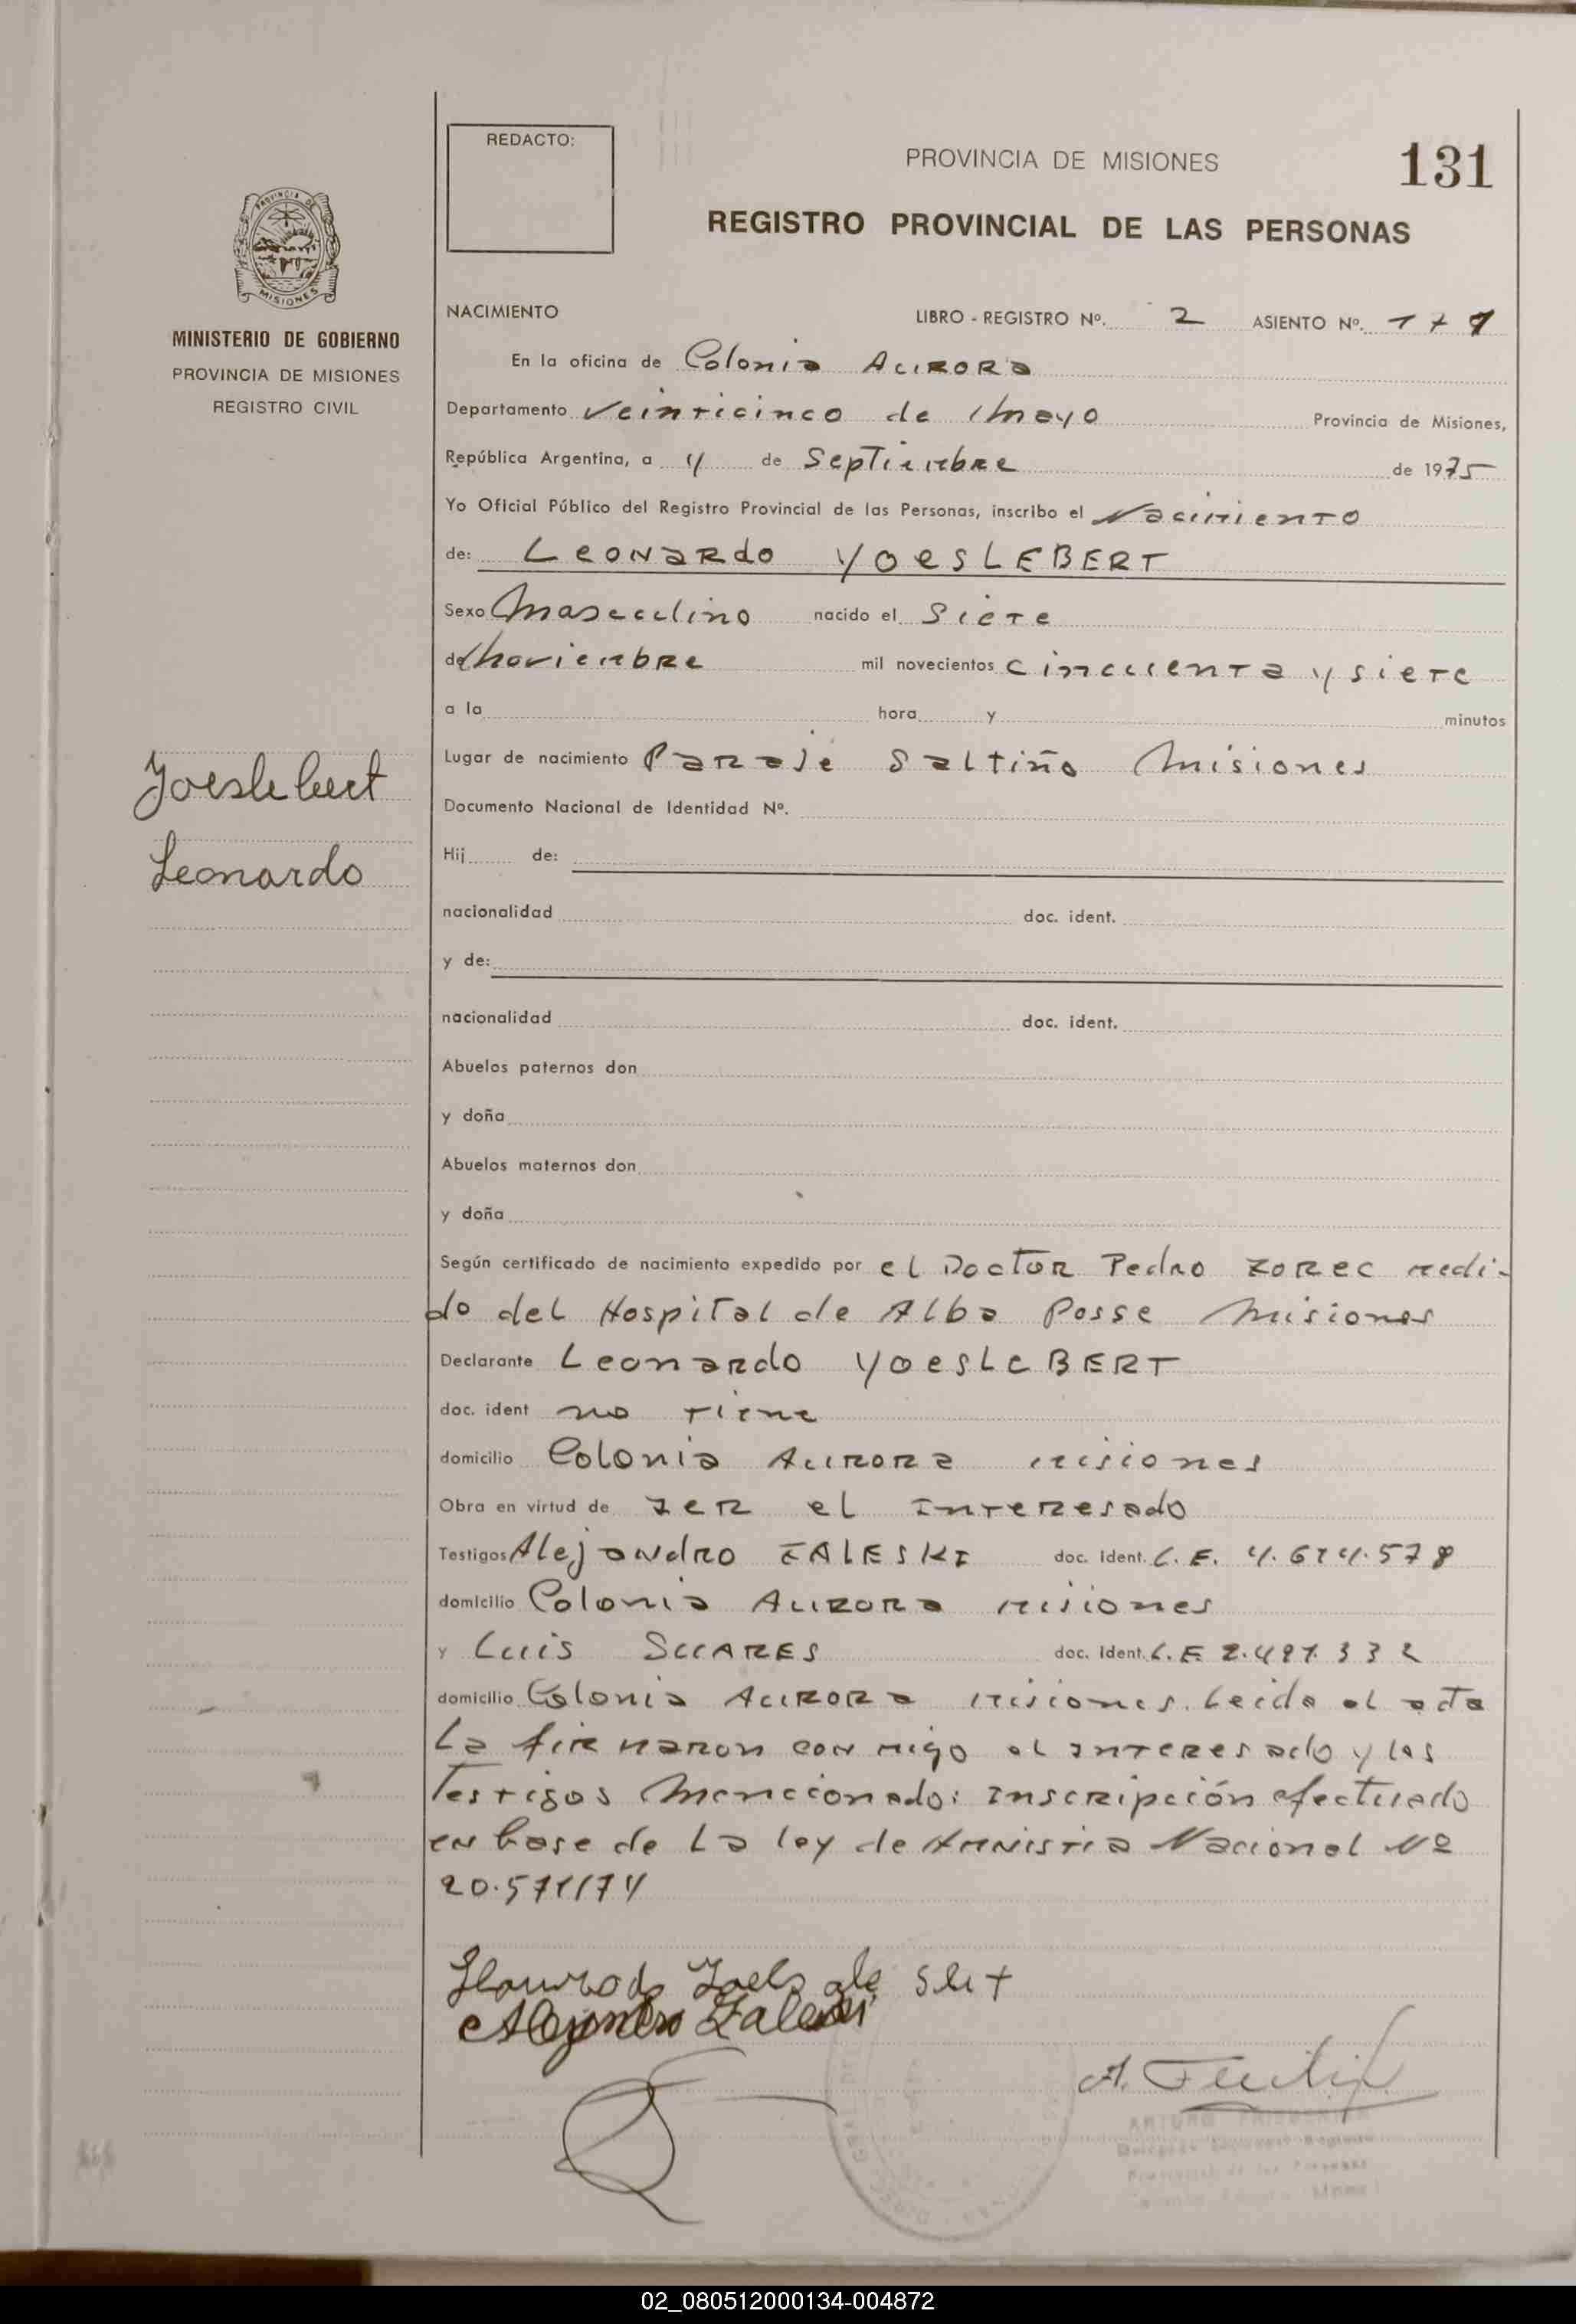 REDACTO:
PROVINCIA DE MISIONES
131
REGISTRO PROVINCIAL DE LAS PERSONAS
PROVINCIA DE
MISIONES
MINISTERIO DE GOBIERNO
PROVINCIA DE MISIONES
REGISTRO CIVIL
NACIMIENTO LIBRO - REGISTRO Nº. 2 ASIENTO Nº.
En la oficina de Colonia AURORA
Departamento Veinticinco de Mayo Provincia de Misiones,
República Argentina, a 4 de Septiembre de 1975
Yo Oficial Público del Registro Provincial de las Personas, inscribo el Nacimiento
de: LeoNaRdo YoesLEBERT
Sexo Masculino nacido el Siete
de Noviembre mil novecientos cincuenta y siete
a la hora y minutos
Lugar de nacimiento Paraje Saltiño Misiones
Yoeslebert
Leonardo
Documento Nacional de Identidad Nº.
Hij de:
nacionalidad doc. ident.
y de:
nacionalidad doc. ident.
Abuelos paternos don
y doña
Abuelos maternos don
y doña
Según certificado de nacimiento expedido por el Doctor Pedro Zorec medi-
do del Hospital de Alba Posse Misiones
Declarante Leonardo YoesLeBERT
doc. ident no tiene
domicilio Colonia Aurora misiones
Obra en virtud de ser el interesado
Testigos Alejandro ZALESKI doc. Ident. C.E. 4.674.578
domicilio Colonia Aurora misiones
y Luis SUARES doc. Ident. L.E 2.497.332
domicilio Colonia Aurora misiones. Leida el acta
La firmaron con migo el interesado y los
Testigos Mencionado: inscripción efectuado
en base de La ley de Amnistia Nacional Nº
20.571/74
Alejandro Zaleski
ARTURO
Provincial de las Personas
02_080512000134-004872